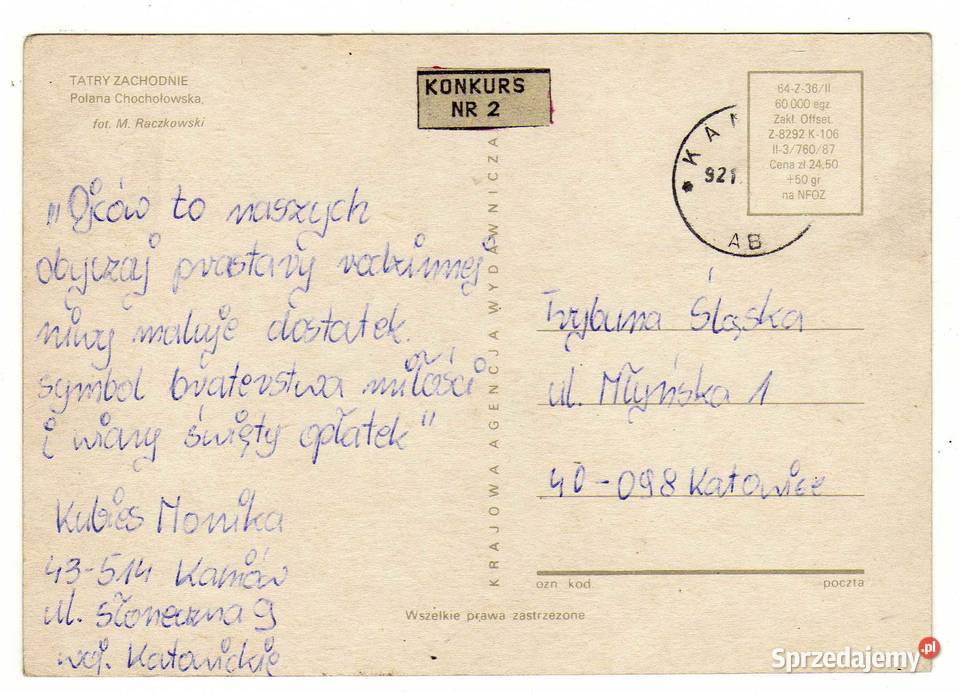 TATRY ZACHODNIE
Polana Chochołowska,
fot. M. Raczkowski
KONKURS
NR 2
64-Z-36/II
60 000 egz.
Zakł. Offset.
Z-8292 K-106
II-3/760/87
Cena zł 24,50
+50 gr
na NFOZ
* KAN
921
AB
"Ojców to naszych
obyczaj prastary rodzinnej
niwy maluje dostatek.
symbol braterstwa miłości
i wiary święty opłatek"
Kubies Monika
43-514 Kaniów
ul. słoneczna 9
woj. Katowickie
KRAJOWA AGENCJA WYDAWNICZA
Trybuna Śląska
ul. Młyńska 1
40-098 Katowice
ozn. kod.
poczta
Wszelkie prawa zastrzeżone
Sprzedajemy.pl